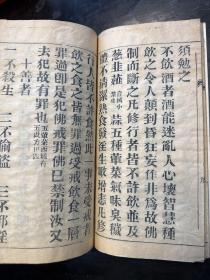 須勉之
不飲酒者酒能迷亂人心壞智慧種
飲之令人顛到昏狂妄作非為故佛
制而斷之凡修行者皆不許飲並及
葱韭薤蒜五種葷菜氣味臭穢
體不清潔熟食發淫生噉增恚凡修
行人皆不許食然此一事未受戒者
飲之食之皆無罪過受戒飲食一層
罪過即是犯佛戒罪佛已禁制汝又
去犯故有罪也
十善者
一不殺生 二不偷盜 三不邪淫